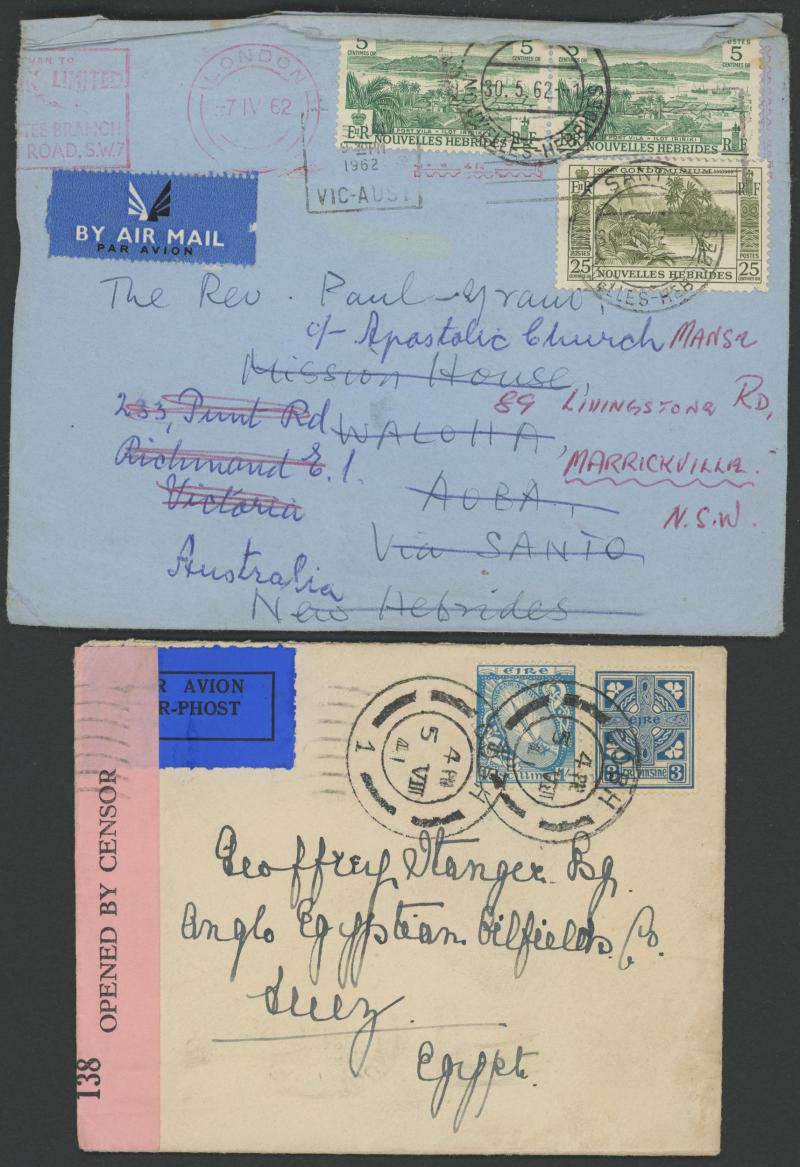 RN TO
LIMITED
TEE BRANCH
ROAD, S.W.7
LONDON
-7 IV 62
5 5 POSTES 5
CENTIMES OR CENTIMES OR CENTIMES OR
E II R PORT VILA - ILOT IRIRIKI R F
NOUVELLES HEBRIDES
PORT VILA - ILOT IRIRIKI
NOUVELLES HEBRIDES R F
30. 5. 62
NOUVELLES-HEBRIDES
1962
VIC-AUST
E II R CONDOMINIUM R F
POSTES POSTES
25 NOUVELLES HEBRIDES 25
SANT
ELLES-HEB
BY AIR MAIL
PAR AVION
The Rev. Paul Grant,
c/- Apostolic Church MANSE
Mission House,
233, Punt Rd 89 LIVINGSTONE RD,
WALOHA,
Richmond E.1. MARRICKVILLE.
AOBA,
Victoria N.S.W.
Via SANTO
Australia
New Hebrides
R AVION
R-PHOST
ÉIRE
ÉIRE
3 3
COBH
4 PM
5 VIII
41
1
COBH
4 PM
5 VIII
41
138 OPENED BY CENSOR
Geoffrey Stanger Esq.
Anglo Egyptian Oilfields Co.
Suez.
Egypt.